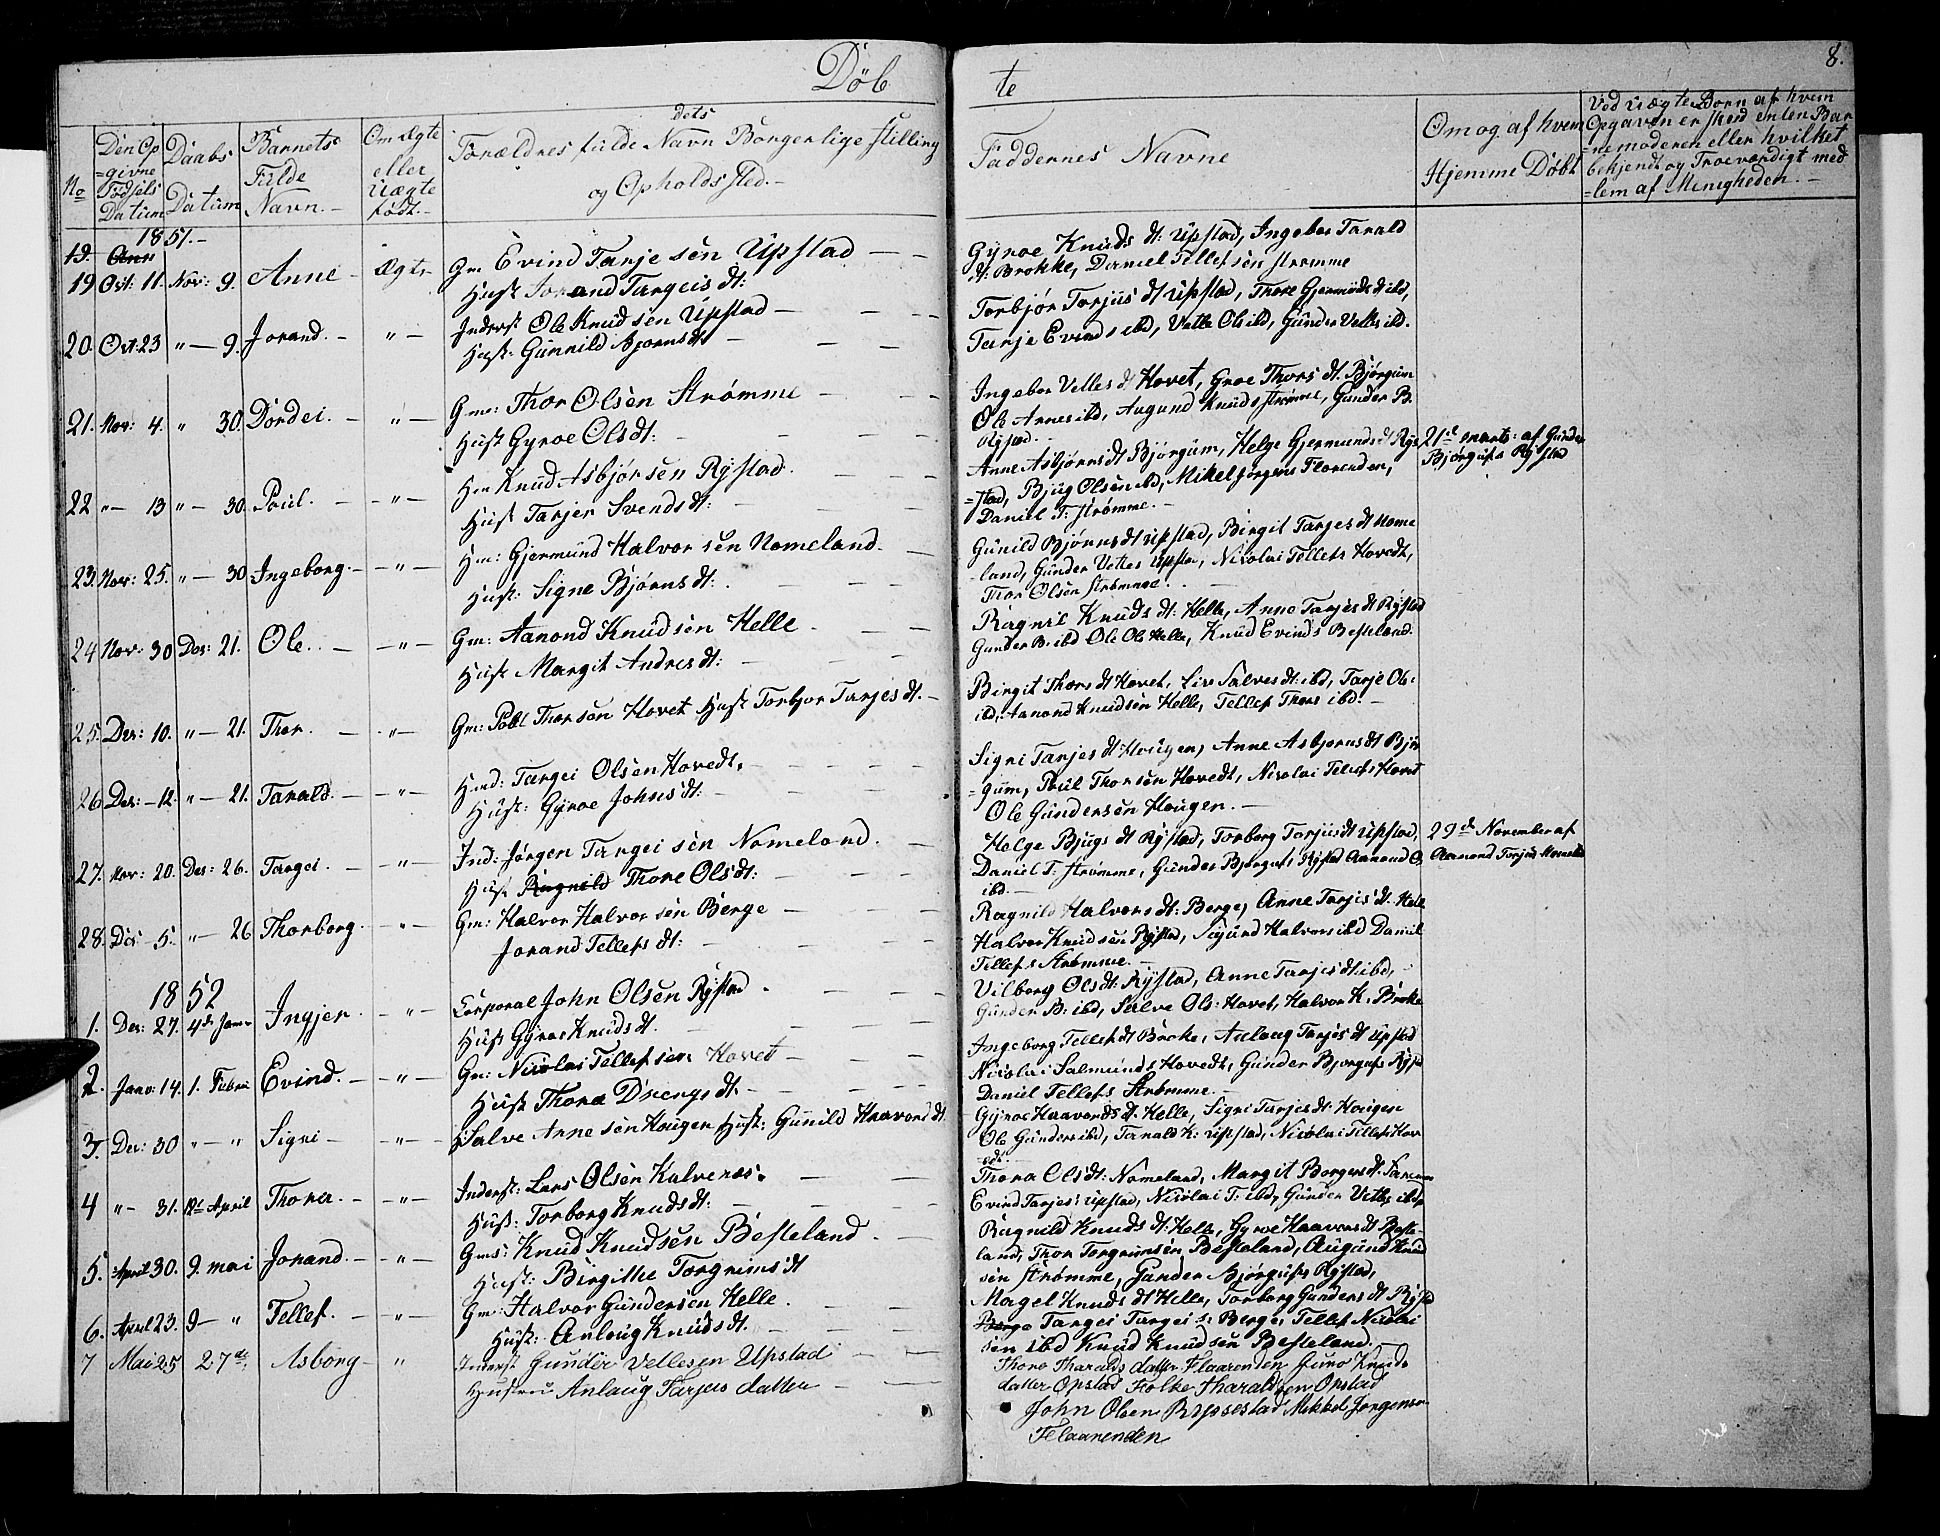 Døb
te
8.
No
Den Op
=givne
Fødsels
Datum
Daabs
Datum
Barnets
Fulde
Navn.-
Om ægte
eller
Uægte
født.-
dets
Forældres fulde Navn Borgerlige stilling
og Opholds sted.-
Faddernes Navne
Om og af hvem
Hjemme Døbt
Ved Uægte Børn af hvem
Opgaven er skeed enten Bar
=nemoderen eller hvilket
bekjendt og Troeværdigt med
=lem af Menigheden.-
1851.-
19 Oct: 11. Nov: 9. Anne - Ægte Gm Evind Tarjesen Upstad
Hust Jorand Targeis dt:
Gyroe Knuds dt: Upstad, Ingebor Tarald
dt: Brokke, Daniel Tellefsen Strømme
20. Oct: 23 "- 9. Jorand. - "- Inderst Ole Knudsen Upstad
Hust: Gunnild Bjørnsdt
Torbjør Torjus dt Upstad, Thore Gjermunds dt ibd,
Tarje Evinds ibd, Vetle Ols ibd, Gunder Vetles ibd.
21. Nov: 4. " 30. Dordei. - "- Gm: Thor Olsen Strømme
Hust Gyroe Olsdt:
Ingebor Vetles d Hovet, Groe Thors dt. Bjørgum
Ole Arnes ibd, Augund Knuds strømme, Gunder B.
Rystad.
22 "- 13 "- 30. Poul. - "- Hm Knud Asbjørsen Rystad.
Hust Tarjer Svendsdt:
Anne Asbjørns dt Bjørgum, Helge Gjermunds d Rys
=stad, Bjug Olsen ibd, Mikel Jørgens Florenden,
Daniel T: Strømme.-
21de af Gunder
Bjørgufs Rystad
23. Nov: 25. "- 30 Ingeborg. - "- Hm: Gjermund Halvorsen Nomeland.
Hust: Signe Bjørnsdt:
Gunild Bjørns dt Upstad, Birgit Tarjes dt Nome
-land, Gunder Vetles Upstad, Nicolai Tellefs Hovedt,
Thor Olsen Strømme.
24 Nov: 30 Des: 21. Ole. - "- Gm: Aanond Knudsen Helle
Hust Margit Andresdt:
Ragnil Knuds dt: Helle, Anne Tarjes dt Rystad
Gunder B. ibd Ole Ols Helle, Knud Evinds Besteland.
25. Des: 10. "- 21. Thor. - "- Gm: Poul Thorsen Hovet Hust Torbjor Tarjes dt.
Birgit Thors dt Hovet, Liv Salves dt: ibd, Tarje Ols:
ibd, Aanond Knudsen Helle, Tellef Thors ibd.-
26 Des: -12. "- 21. Tarald. - "- Hmd: Targei Olsen Hovedt.
Hust: Gyroe Johnsdt:
Signi Tarjes dt: Hougen, Anne Asbjørns dt Bjør
=gum, Poul Thorsen Hovedt, Nicolai Telefs Hovet
Ole Gundersen Hougen.-
27. Nov: 20. Des: 26. Targei. - "- Ind: Jørgen Targeisen Nomeland.
Hust Ragnild Thore Olsdt:
Helge Bjugs dt Rystad, Torborg Torjus dt Upstad,
Daniel T: Strømme, Gunder Bjørgufs Rystad Aanond O.
ibd.-
29de November af
Aanond Torjus Nomeland
28. Des 5. "- 26 Thorborg. - "- Gm: Halvor Halvorsen Berge
Jorand Tellefs dt:
Ragnild Halvors dt: Berge, Anne Tarjes dt. Helle
Halvor Knudsen Rystad, Sigund Halvors ibd Daniel
Tellefs Strømme.-
1852
1. Des: 27. 4de Janr Ingjer. - "- Corporal John Olsen Rystad
Hust Gyroe Knudsdt.
Vilborg Ols dt: Rystad, Anne Tarjes dt: ibd,
Gunder B: ibd, Salve Ols: Hovet, Halvor K. Broke
2. Janv: 14. 1. Febr: Evind. - "- Gm: Nicolai Tellefsen Hovet
Hust Thora Drengsdt.
Ingeborg Tellef dt Broke, Aslaug Tarjes dt Upstad
Nicolai Salmunds Hovedt, Gunder Bjørgufs Ryst
Daniel Tellefs Strømme.-
3. Des: 30 "- " Signi - "- Salve Annesen Hougen Hust: Gunild Haavors dt
Gyroe Haavords dt. Helle, Signi Tarjes dt: Hougen
Ole Gunders ibd, Tarald K: Upstad, Nicolai Tellefs Hov
=edt.
4 "- 31. 12te April Thora. - "- Inderst: Lars Olsen Kalvenes.
Hust: Torborg Knudsdt:
Thora Ols dt: Nomeland, Margit Borgers dt.
Evind Tarjes: Upstad, Nicolai T: ibd, Gunder Vetles ibd
5. April 30. 9. mai Jorand. - "- Gm: Knud Knudsen Besteland.
Hust: Birgithe Torgrims dt
Ragnild Knuds dt: Helle, Gyroe Haavors dt Beste-
land, Thor Torgrimsen Besteland, Augund Knud
sen Strømme, Gunder Bjørgufs Rystad,
6. April 23. 9- " Tellef. - "- Gm: Halvor Gundersen Helle.
Hust: Anlaug Knudsdt.
Magel Knuds dt Helle, Torborg Gunders dt Rystad
Berge Targei Targei s: Berge, Tellef Nicolai
sen ibd Knud Knudsen Besteland.
7 Mai 25 27de. Asborg - " Inderst Gunder Vellesen Upstad
Hustru Anlaug Tarjeis datter
Thora Tharalds datter Flaarenden Juro Knuds
datter Opstad Folke Tharaldsen Opstad
John Olsen Ryssestad Mikkel Jørgensen
Flaarenden